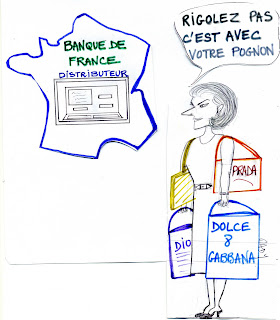 BANQUE DE
FRANCE
DISTRIBUTEUR
RIGOLEZ PAS
C'EST AVEC
VOTRE POGNON
PRADA
DIO
DOLCE
&
GABBANA